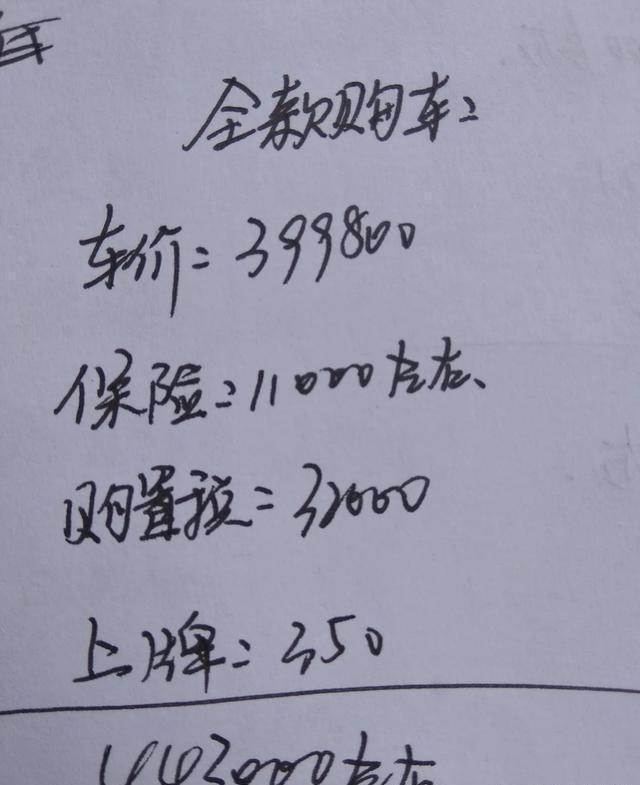 全款购车：
车价：399800
保险：11000左右、
购置税：32000
上牌：350
443000左右